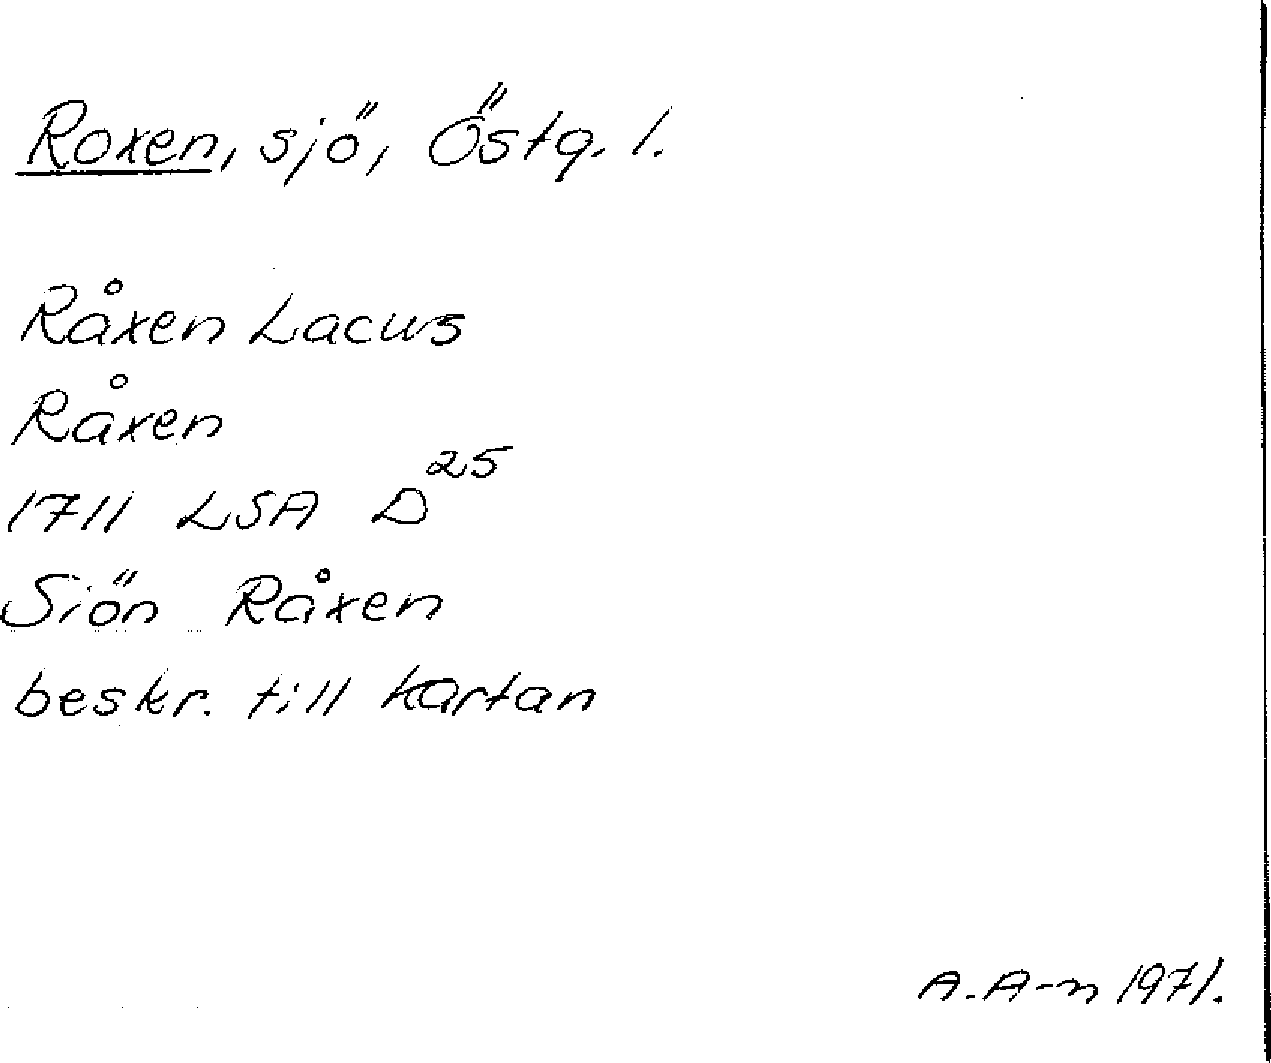 Roxen, sjö, Östg. l.
Råxen Lacus
Råxen
1711 LSA D²⁵
Siön Råxen
beskr. till kartan
A. A-n 1971.